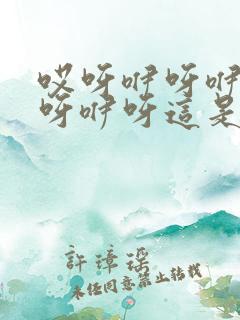 哎呀咿呀咿
呀咿呀這是
許瓊瑤
未任同意禁止轉載